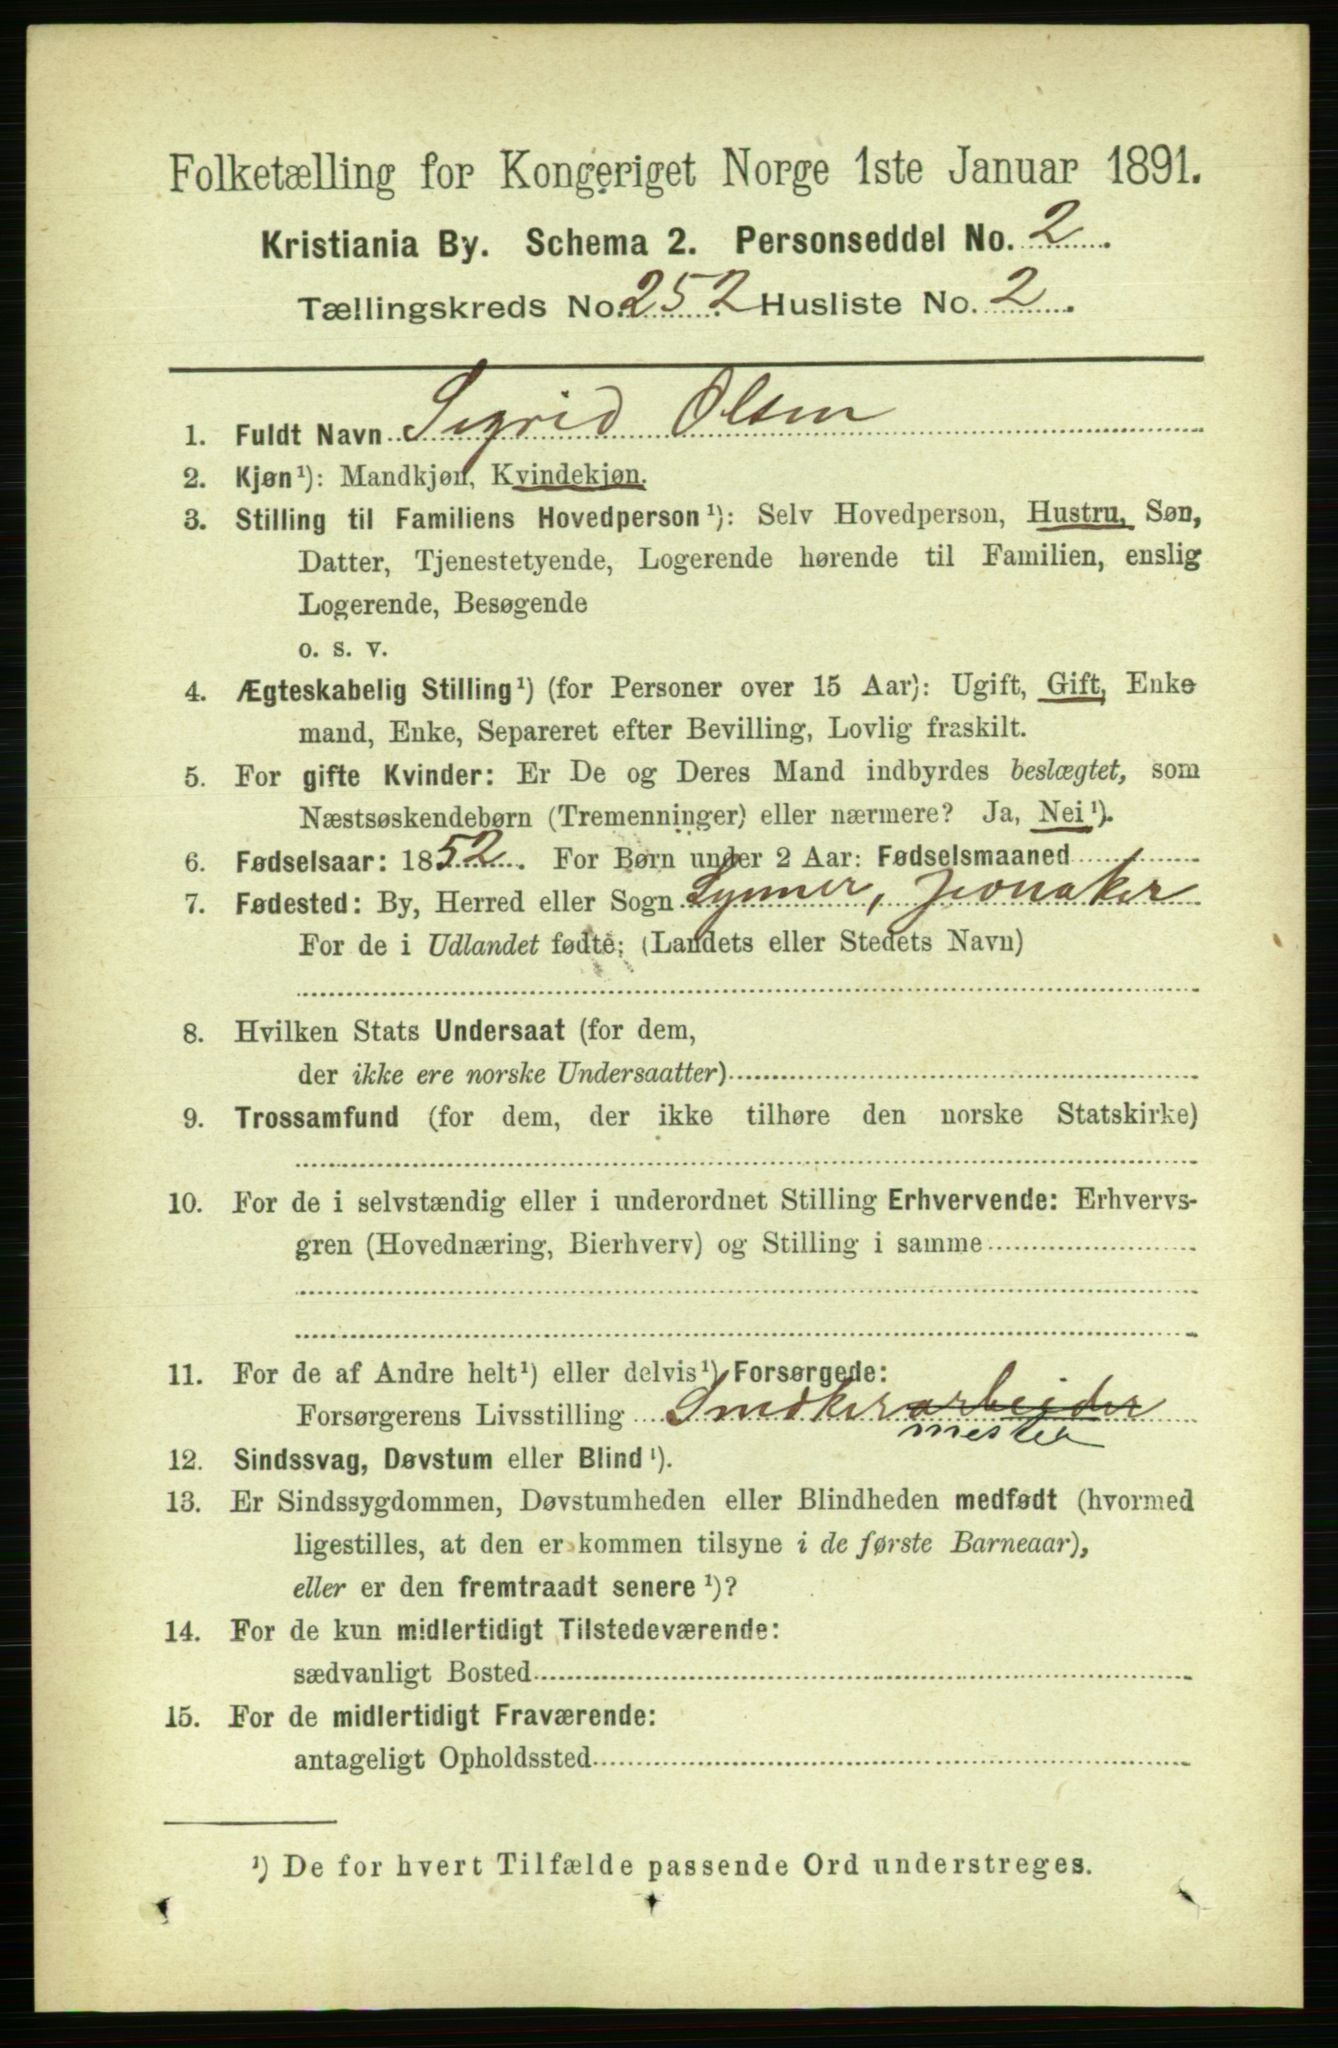 Folketælling for Kongeriget Norge 1ste Januar 1891.
Kristiania By. Schema 2. Personseddel No. 2.
Tællingskreds No. 252. Husliste No. 2.
1. Fuldt Navn Sigrid Olsen
2. Kjøn¹): Mandkjøn, Kvindekjøn.
3. Stilling til Familiens Hovedperson¹): Selv Hovedperson, Hustru, Søn,
Datter, Tjenestetyende, Logerende hørende til Familien, enslig
Logerende, Besøgende
o. s. v.
4. Ægteskabelig Stilling¹) (for Personer over 15 Aar): Ugift, Gift, Enke
mand, Enke, Separeret efter Bevilling, Lovlig fraskilt.
5. For gifte Kvinder: Er De og Deres Mand indbyrdes beslægtet, som
Næstsøskendebørn (Tremenninger) eller nærmere? Ja, Nei¹).
6. Fødselsaar: 1852. For Børn under 2 Aar: Fødselsmaaned
7. Fødested: By, Herred eller Sogn Lynner, Jevnaker
For de i Udlandet fødte; (Landets eller Stedets Navn)
8. Hvilken Stats Undersaat (for dem,
der ikke ere norske Undersaatter)
9. Trossamfund (for dem, der ikke tilhøre den norske Statskirke)
10. For de i selvstændig eller i underordnet Stilling Erhvervende: Erhvervs-
gren (Hovednæring, Bierhverv) og Stilling i samme
11. For de af Andre helt¹) eller delvis¹) Forsørgede:
Forsørgerens Livsstilling Snedkerarbeider
mester
12. Sindssvag, Døvstum eller Blind¹).
13. Er Sindssygdommen, Døvstumheden eller Blindheden medfødt (hvormed
ligestilles, at den er kommen tilsyne i de første Barneaar),
eller er den fremtraadt senere¹)?
14. For de kun midlertidigt Tilstedeværende:
sædvanligt Bosted
15. For de midlertidigt Fraværende:
antageligt Opholdssted
¹) De for hvert Tilfælde passende Ord understreges.